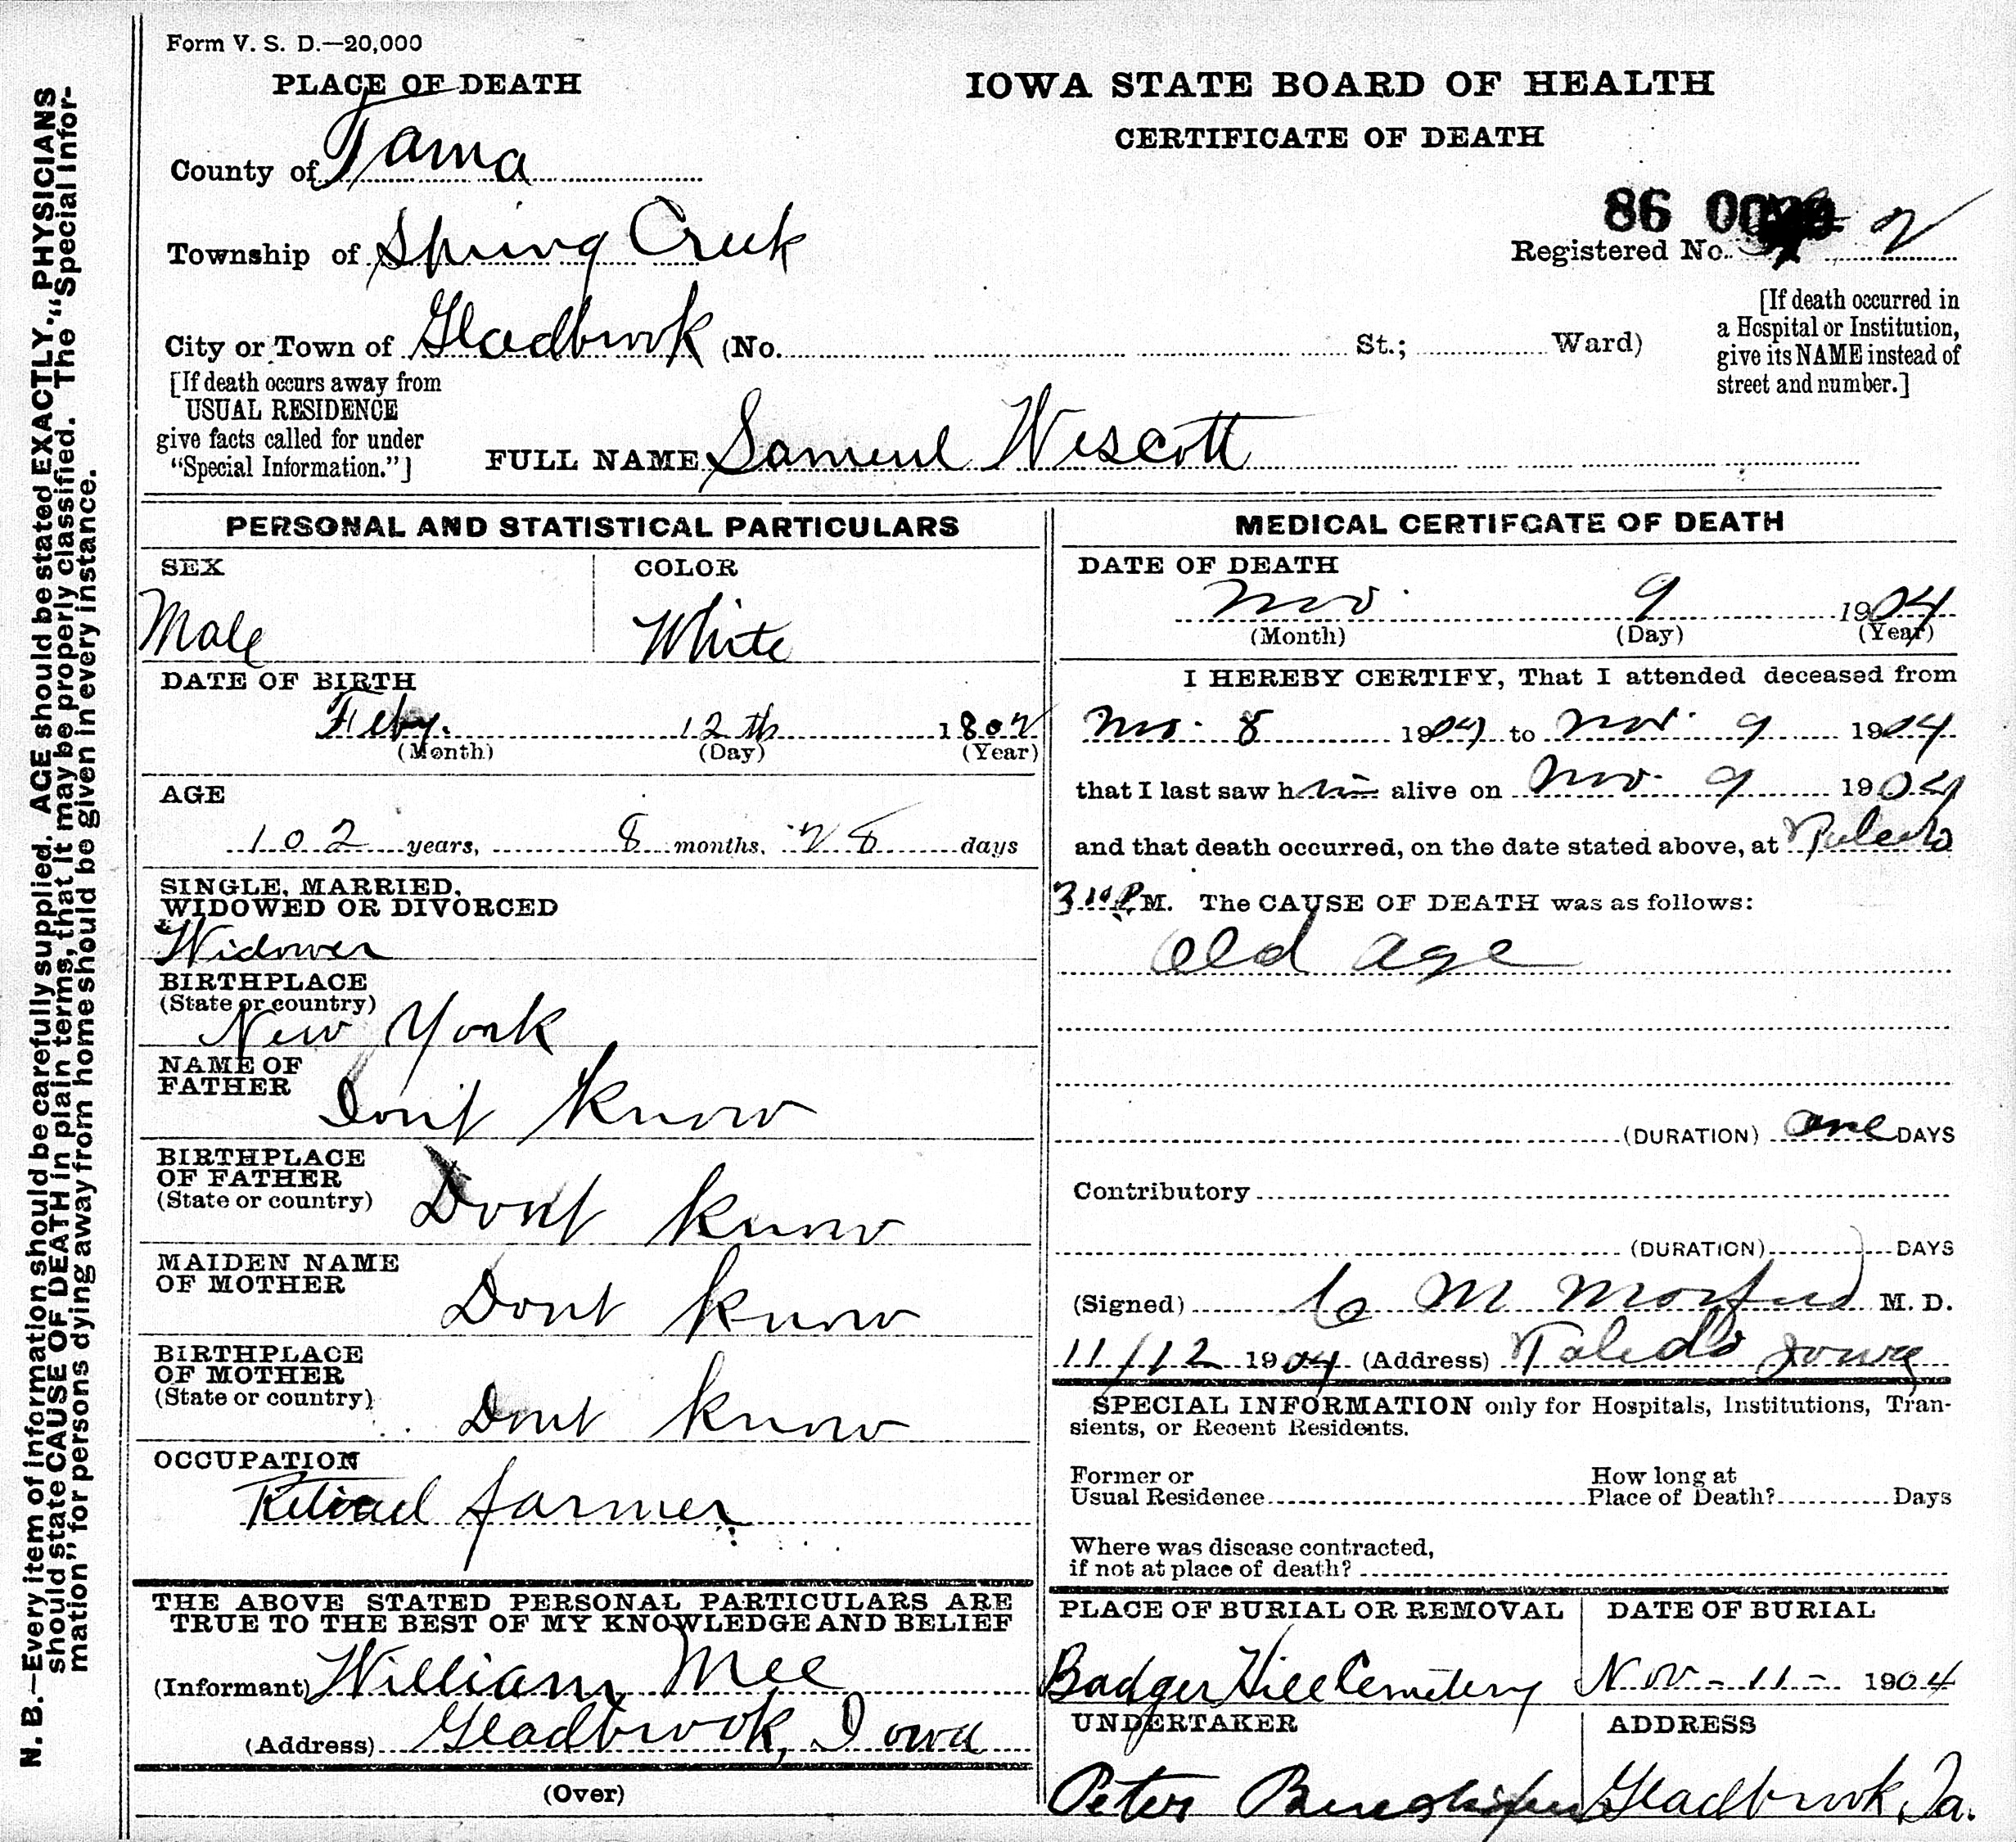 Form V. S. D.—20,000
PLACE OF DEATH
IOWA STATE BOARD OF HEALTH
CERTIFICATE OF DEATH
County of Tama
86 00
Township of Spring Creek
Registered No. 2
City or Town of Gladbrook (No. St.; Ward)
[If death occurred in
a Hospital or Institution,
give its NAME instead of
street and number.]
[If death occurs away from
USUAL RESIDENCE
give facts called for under
"Special Information."]
FULL NAME Samuel Wescott
PERSONAL AND STATISTICAL PARTICULARS
SEX
Male
COLOR
White
DATE OF BIRTH
Feby. 12th 1802
(Month) (Day) (Year)
AGE
102 years, 8 months, 28 days
SINGLE, MARRIED,
WIDOWED OR DIVORCED
Widower
BIRTHPLACE
(State or country)
New York
NAME OF
FATHER
Don't know
BIRTHPLACE
OF FATHER
(State or country)
Dont know
MAIDEN NAME
OF MOTHER
Dont know
BIRTHPLACE
OF MOTHER
(State or country)
Dont know
OCCUPATION
Retired farmer
THE ABOVE STATED PERSONAL PARTICULARS ARE
TRUE TO THE BEST OF MY KNOWLEDGE AND BELIEF
(Informant) William Mee
(Address) Gladbrook, Iowa
(Over)
MEDICAL CERTIFCATE OF DEATH
DATE OF DEATH
Nov. 9 1904
(Month) (Day) (Year)
I HEREBY CERTIFY, That I attended deceased from
Nov. 8 1904 to Nov. 9 1904
that I last saw him alive on Nov. 9 1904
and that death occurred, on the date stated above, at Toledo
3 10 P.M. The CAUSE OF DEATH was as follows:
Old age
(DURATION) one DAYS
Contributory
(DURATION) DAYS
(Signed) C M Morford M. D.
11/12 1904 (Address) Toledo Iowa
SPECIAL INFORMATION only for Hospitals, Institutions, Tran-
sients, or Recent Residents.
Former or
Usual Residence
How long at
Place of Death? Days
Where was disease contracted,
if not at place of death?
PLACE OF BURIAL OR REMOVAL
Badger Hill Cemetery
DATE OF BURIAL
Nov - 11 - 1904
UNDERTAKER
Peter
ADDRESS
Gladbrook, Ia.
N. B.—Every item of information should be carefully supplied. AGE should be stated EXACTLY. PHYSICIANS
should state CAUSE OF DEATH in plain terms, that it may be properly classified. The "Special Infor-
mation" for persons dying away from home should be given in every instance.